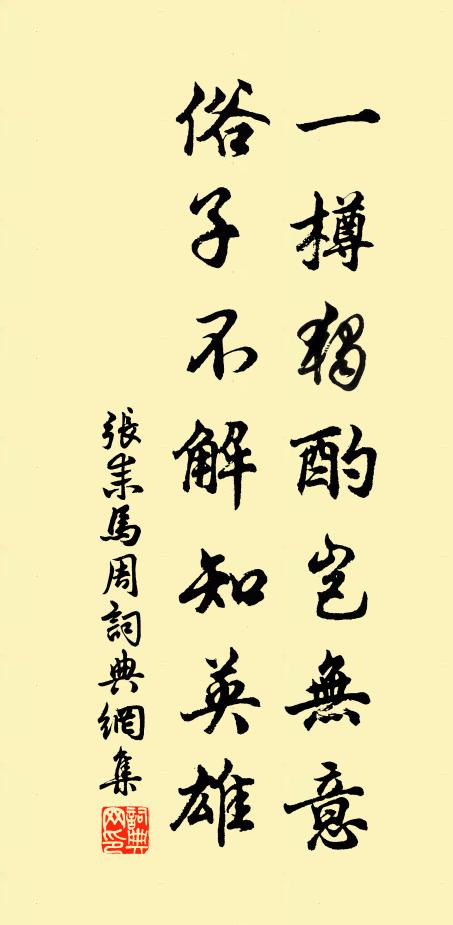 一樽獨酌豈無意
俗子不解知英雄
張耒馬周詞典網集
詞典网印